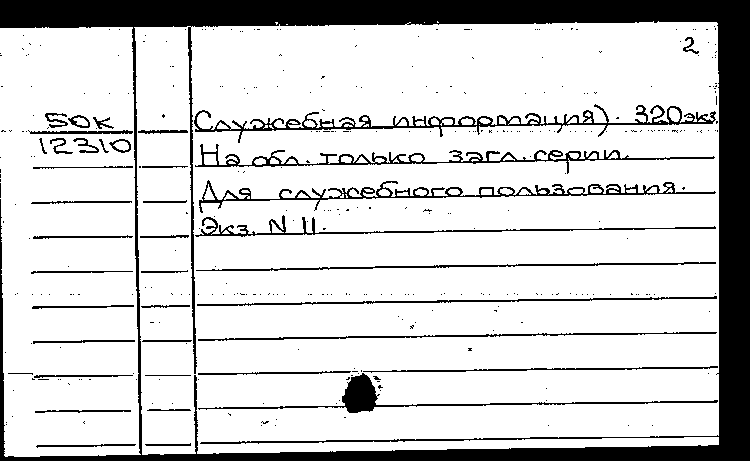 2
50К Служебная информация). 320экз
12310
На обл. только загл. серии.
Для служебного пользования.
Экз. N 11.